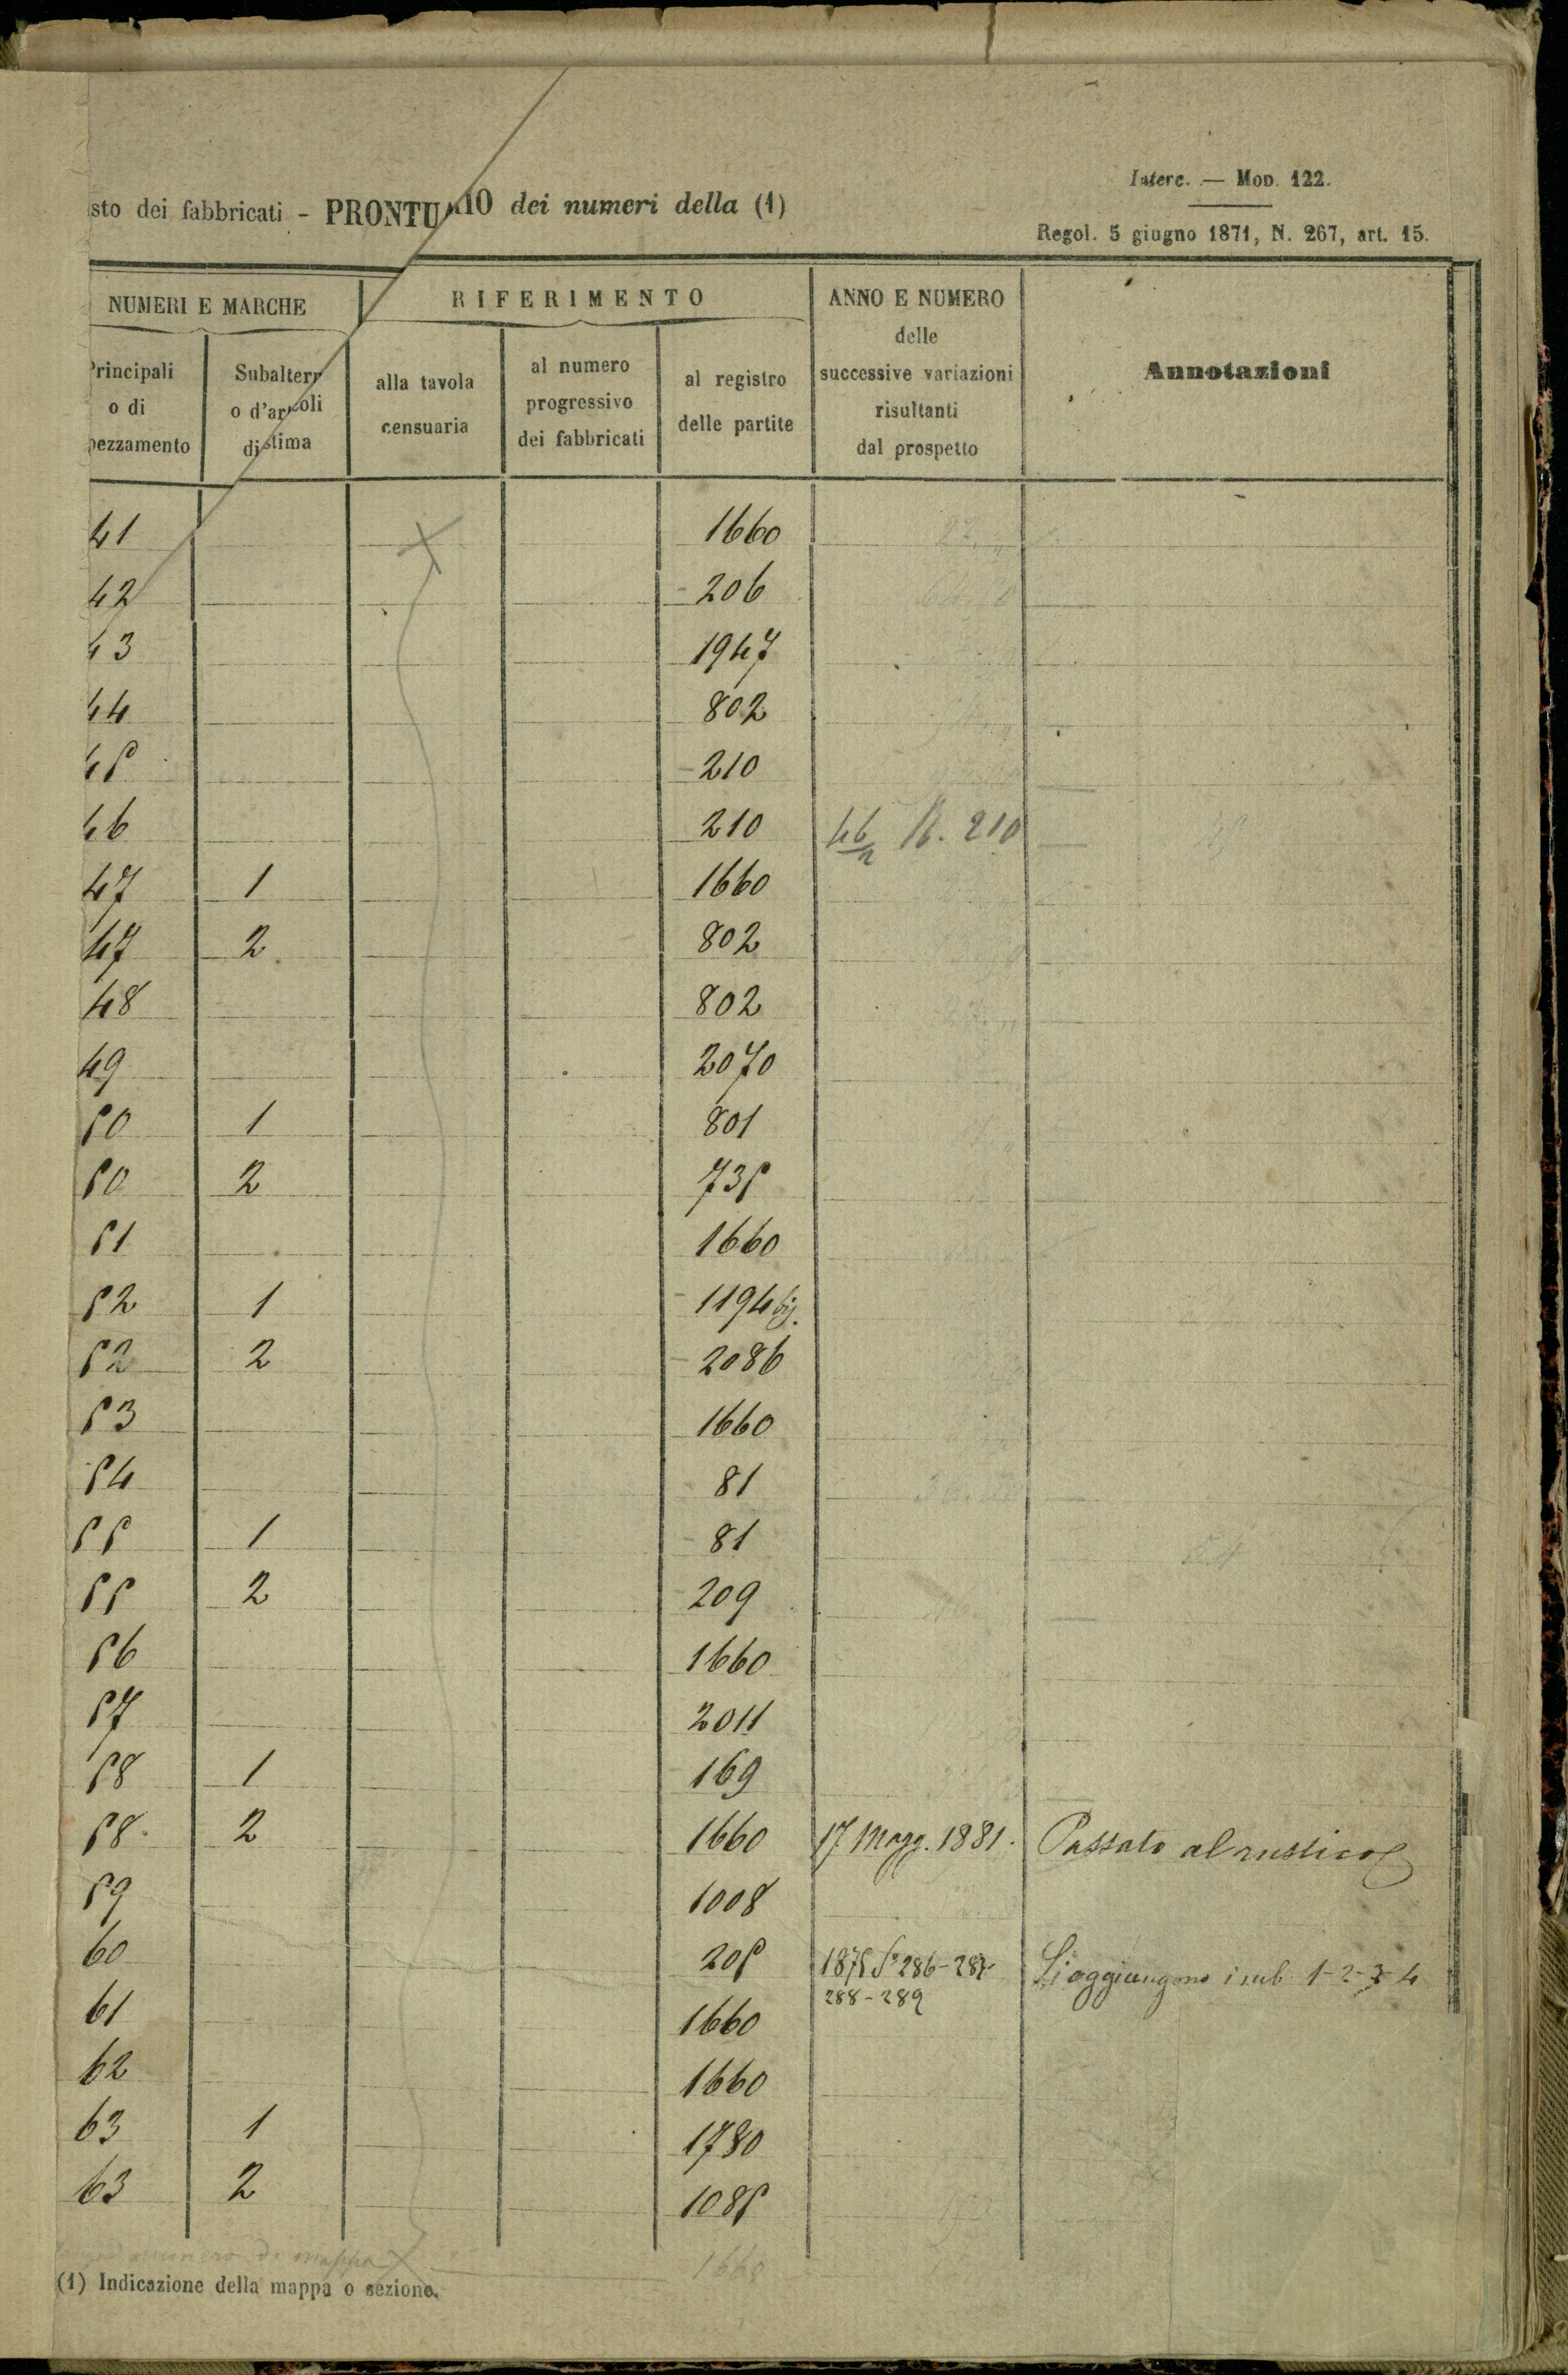 Interc. — Mod. 122.
sto dei fabbricati - PRONTUARIO dei numeri della (1)
Regol. 5 giugno 1871, N. 267, art. 15.
NUMERI E MARCHE
RIFERIMENTO
ANNO E NUMERO
delle
successive variazioni
risultanti
dal prospetto
Annotazioni
Principali
o di
pezzamento
Subaltern
o d'articoli
di stima
alla tavola
censuaria
al numero
progressivo
dei fabbricati
al registro
delle partite
41 1660
42 206
43 1947
44 802
45 210
46 210 46/2 P. 210
47 1 1660
47 2 802
48 802
49 2070
50 1 801
50 2 735
51 1660
52 1 1194 bis.
52 2 2086
53 1660
54 81
55 1 81
55 2 209
56 1660
57 2011
58 1 169
58 2 1660 17 Magg. 1881. Passato al rustico
59 1008
60 205 1875 286-287- Si aggiungono i sub. 1-2-3-4
288-289
61 1660
62 1660
63 1 1780
63 2 1085
numero di mappa
(1) Indicazione della mappa o sezione.